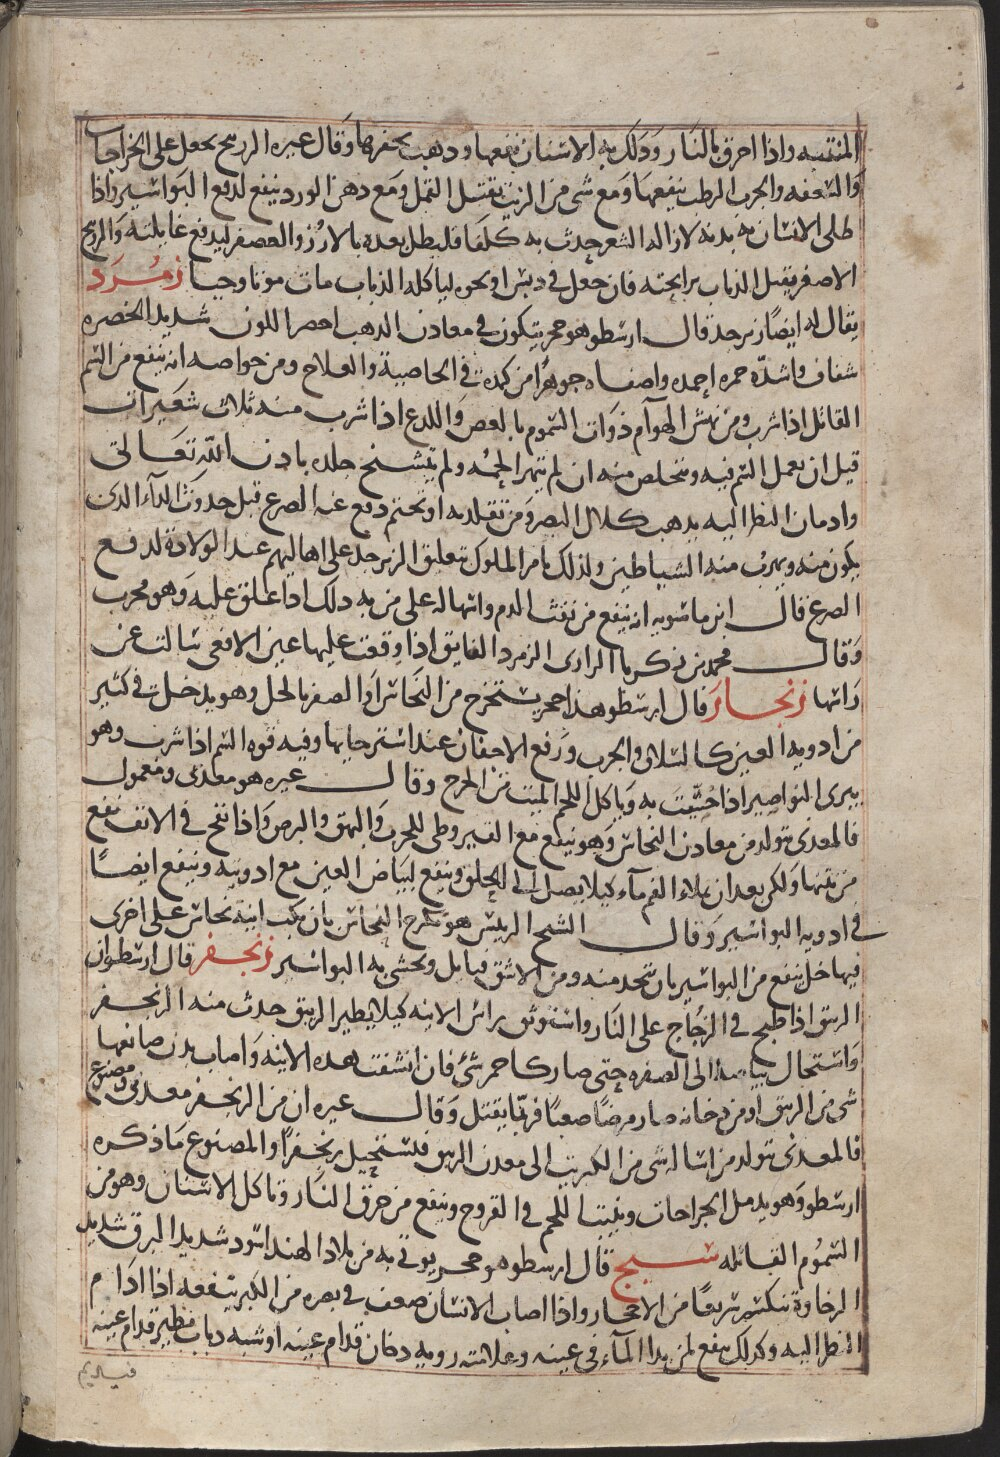 المنتنه واذا احرق بالنار ودلك به الاسنان نفعها ودهب بحفرها وقال عيره الزرنيح يحعل على الجراحات
والسعفه والجرب الرطب ينفعها ومع شى من الزيت يقتل القمل ومع دهن الورد ينفع لدفع البواسير واذا
طلى الانسان به بدنه لازاله الشعر حدث به كلفا فليطل بعده بالارز والعصفر ليدفع غايلته والزرنيح
الاصفر يقتل الذباب برايحته فان جعل فى دبس او نحوه لياكله الذباب مات موتا وحيا زمرد
يقال له ايضا زبرجد قال ارسطو هو حجر يتكون فى معادن الدهب احصر اللون شديد الخضره
شفاف واشده حمره اجمده واصفاه جوهرا من كمده فى الخاصية والعلاج ومن حواصه انه ينفع من السم
القاتل اذا شرب ومن نهش الهوآم ذوات السموم بالعص واللدع اذا شرب منه ثلاث شعيرات
قبل ان يعمل السم فيه وتخلص منه ان لم يتهرا لحمه ولم يتشنح جلده بادن الله تعالى
وادمان النظر اليه يدهب كلال البصر ومن تقلد به او تختم دفع عنه الصرع قبل حدوث الداء الذى
يكون منه ويهرب منه الشياطين ولذلك يامر الملوك بتعليق الزبرجد على اهاليهم عند الولادة لدفع
الصرع قال ابن ماسويه انه ينفع من نفث الدم واسهاله على من به دلك اذا علق عليه وهو مجرب
وقال محمد بن زكريا الرازى الزمرد الفايق اذا وقعت عليها عين الافعى سالت عن
راسها زنجار قال ارسطو هذا حجر يستخرج من النحاس او الصفر بالخل وهو يدخل فى كثير
من ادويه العين كالسلاق والجرب ورفع الاجفان عند استرخايها وفيه قوه السم اذا شرب وهو
يبرى النواصير اذا حشيت به وياكل اللحم الميت من الجرح وقال عيره هو معدنى ومعمول
فالمعدنى يتولد من معادن النحاس وهو ينفع مع القيروطى للجرب والبهق والبرص واذا نفخ فى الانف نفع
من نتنها ولكن بعد ان يملاء الفم مآء كيلا يصل الى الحلق وينفع لبياض العين مع ادويته وينفع ايضا
فى ادويه البواسير وقال الشيخ الرييس هو يتخرج النحاس بان يكب انية نحاس على اخرى
فيها خل ينفع من البواسير بان يتخد منه ومن الاشق فتايل وتحشى به البواسير زنجفر قال ارسطو ان
الزيبق اذا طبخ فى الزجاج على النار واستوثق براس الانيه كيلا يطير الزيبق حدث منه الزنجفر
واستحال بياضه الى الصفره حتى صار كاحمر شئ فان انشقت هده الانيه واصاب بدن صانعها
شى من الزيبق او من دخانه صار مرضا صعبا فربما يقتل وقال عيره ان من الزنجفر معدنى ومصنوع
فالمعدنى يتولد من اساله شى من الكبريت الى معدن الزيبق فلستحيل زنجفرا والمصنوع ما ذكره
ارسطو وهو يدمل الجراحات وينبت اللحم فى القروح وينفع من حرق النار وتاكل الاسنان وهو من
السموم القاتله سبج قال ارسطو هو حجر يوتى به من بلاد الهند اسود شديد البرق شديد
الرخاوة ينكسر سريعا من الاحجار واذا اصاب الانسان ضعف فى بصره من الكبر ينفعه اذا ادام
النظر اليه وكدلك ينفع لمن بدا المآء فى عينه وعلامته رويه دخان قدام عينه او شبه دباب يطير قدام عينه